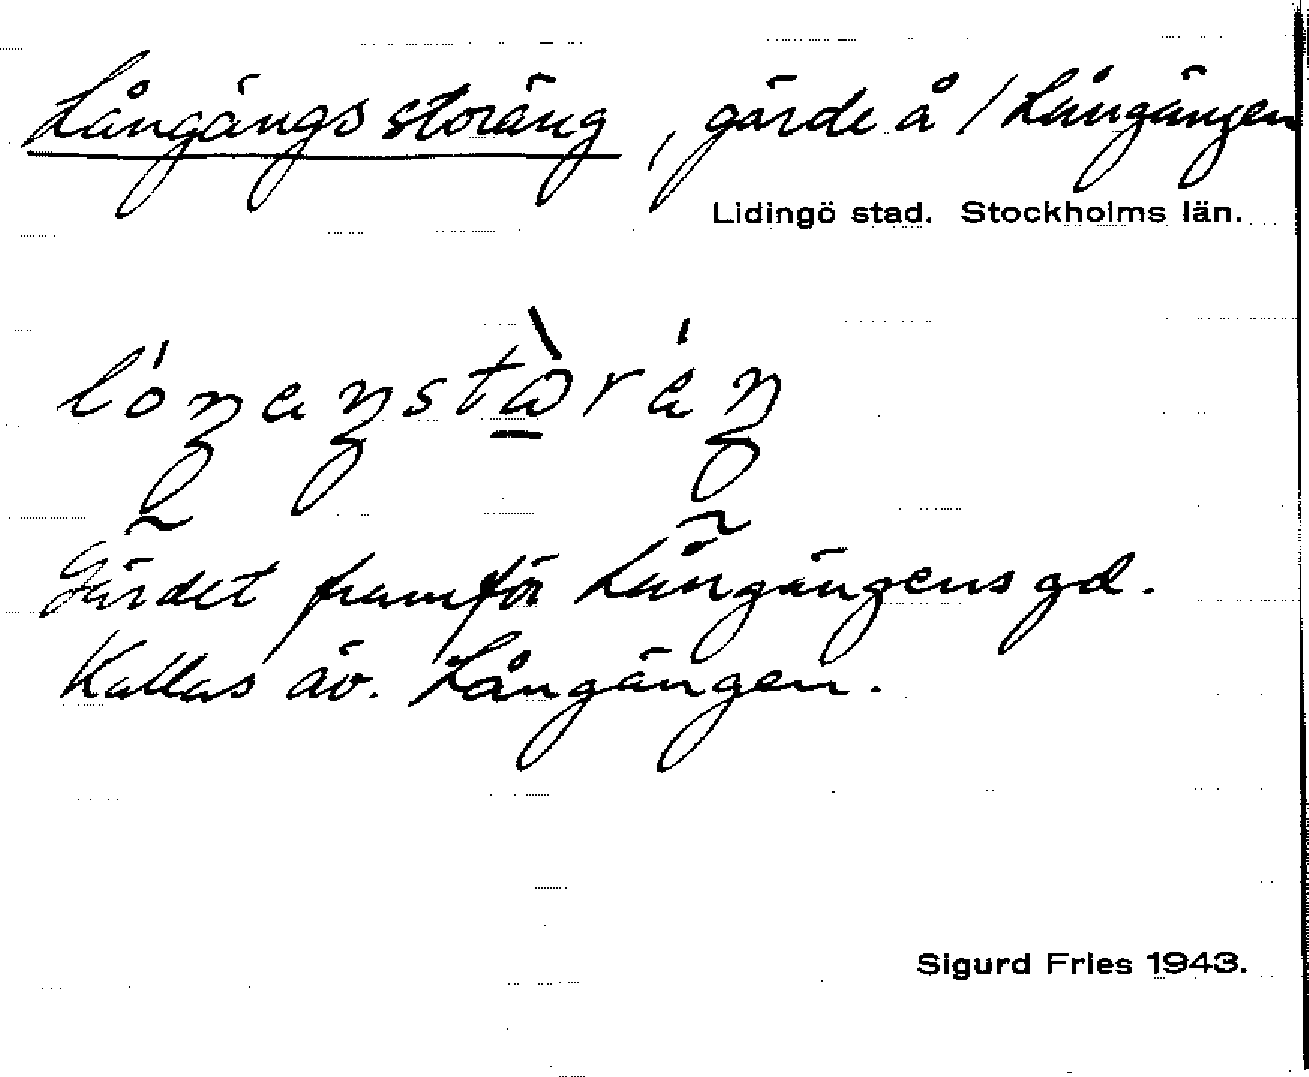 Långängs storäng, gärde å / Långängen
Lidingö stad. Stockholms län.
Gärdet framför Långängens gd.
Kallas äv. Långängen.
Sigurd Fries 1943.